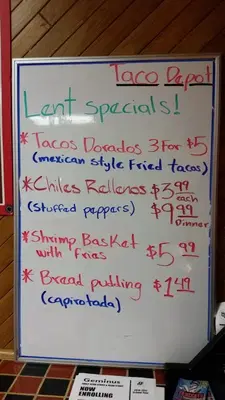 Taco Depot
Lent specials!
* Tacos Dorados 3 For $5
(mexican style Fried tacos)
* Chiles Rellenos $3.99 each
(stuffed peppers) $9.99 Dinner
* Shrimp Basket $5.99
with Fries
* Bread pudding $1.49
(capirotada)
Geminus
NOW
ENROLLING